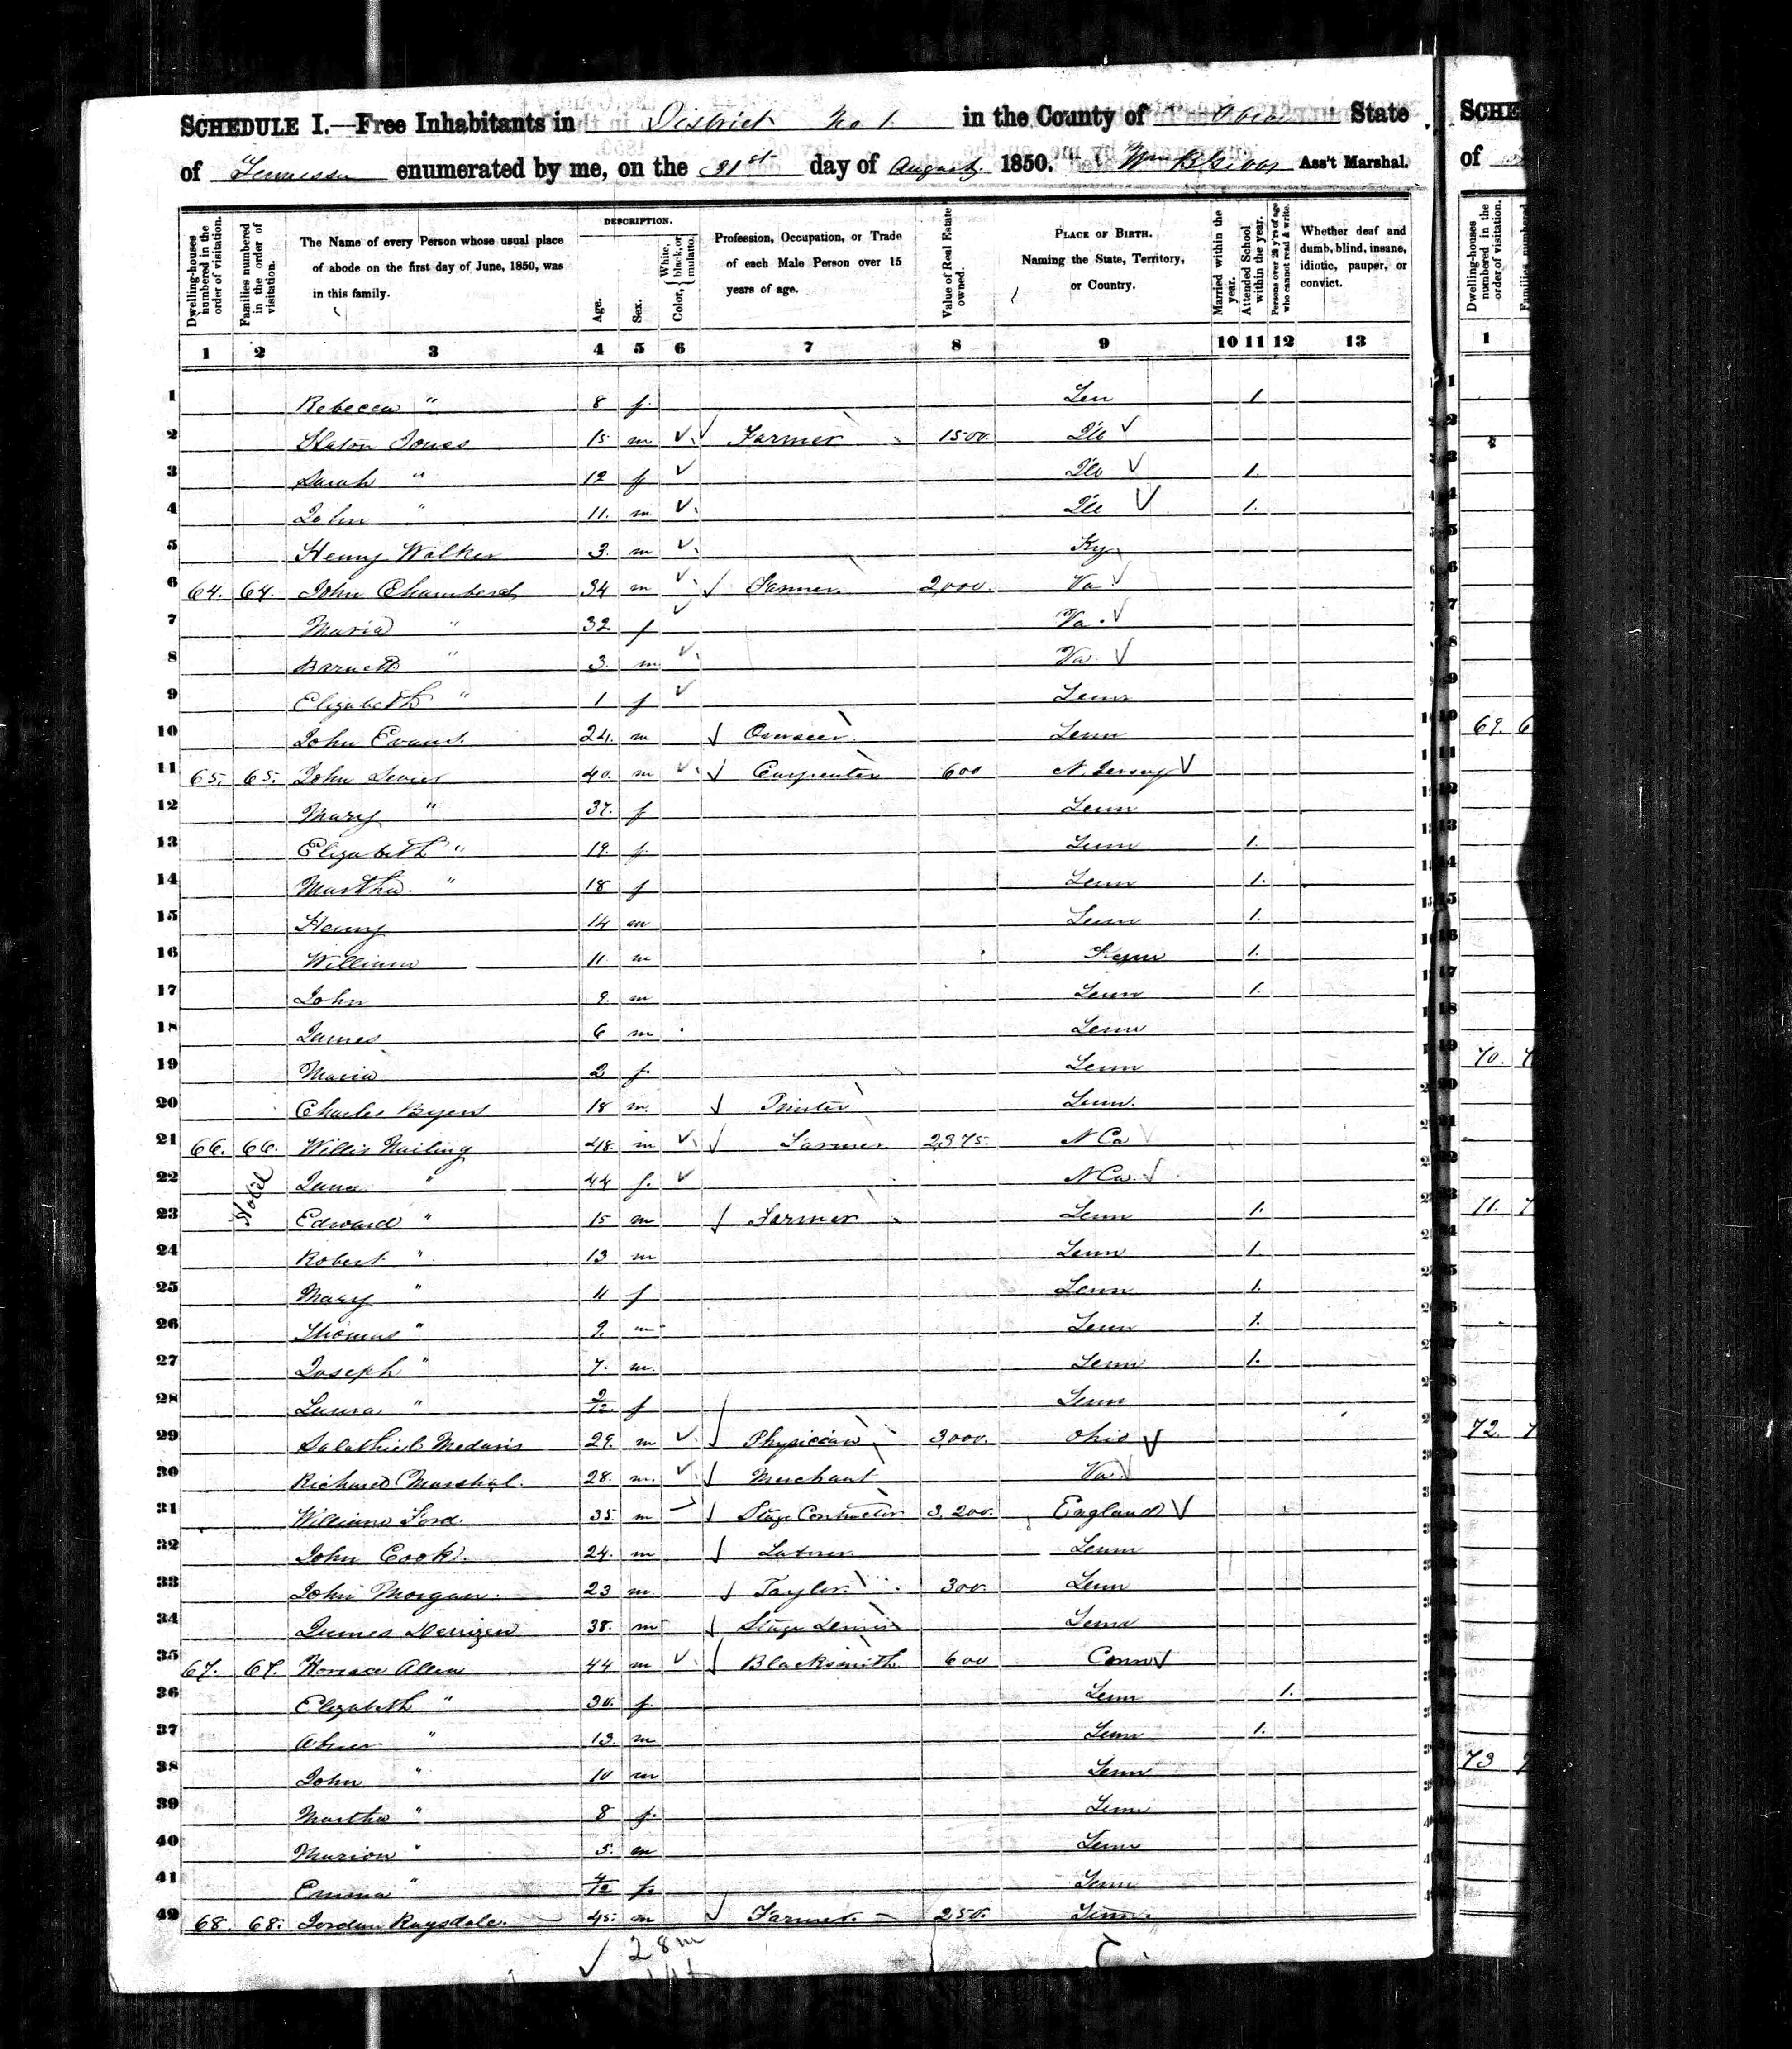 SCHEDULE I.—Free Inhabitants in District No 1 in the County of Obion State
of Tennessee enumerated by me, on the 31st day of August 1850. Wm B Ass't Marshal.
Dwelling-houses numbered in the order of visitation.
Families numbered in the order of visitation.
The Name of every Person whose usual place of abode on the first day of June, 1850, was in this family.
DESCRIPTION.
Age.
Sex.
Color, { White, black, or mulatto.
Profession, Occupation, or Trade of each Male Person over 15 years of age.
Value of Real Estate owned.
PLACE OF BIRTH. Naming the State, Territory, or Country.
Married within the year.
Attended School within the year.
Persons over 20 y'rs of age who cannot read & write.
Whether deaf and dumb, blind, insane, idiotic, pauper, or convict.
1 2 3 4 5 6 7 8 9 10 11 12 13
1 Rebecca " 8 f Ten 1
2 Jones 15 m Farmer 1500 Ill
3 Sarah " 12 f Ill 1
4 John " 11 m Ill 1
5 Henny Walker 3 m Ky
6 64 64 John Chambers 34 m Farmer 2,000 Va
7 Maria " 32 f Va
8 Barnett " 3 m Va
9 Elizabeth " 1 f Tenn
10 John Evans 24 m Overseer Tenn
11 65 65 John 40 m Carpenter 600 N. Jersey
12 Mary " 37 f Tenn
13 Elizabeth " 19 f Tenn 1
14 Martha " 18 f Tenn 1
15 Henny 14 m Tenn 1
16 William 11 m Tenn 1
17 John 9 m Tenn 1
18 James 6 m Tenn
19 Maria 2 f Tenn
20 Charles Byers 18 m Tenn
21 66 66 Willis Nailing 48 m Farmer 2,375 N Ca
22 Hotel Jane " 44 f N Ca
23 Edward " 15 m Farmer Tenn 1
24 Robert " 13 m Tenn 1
25 Mary " 11 f Tenn 1
26 Thomas " 9 m Tenn 1
27 Joseph " 7 m Tenn 1
28 Laura " 2/12 f Tenn
29 Salathiel Medaris 29 m Physician 3,000 Ohio
30 Richard Marshal 28 m Merchant Va
31 William Ford 35 m Stage Contractor 3,200 England
32 John Cook 24 m Laborer Tenn
33 John Morgan 23 m Taylor 300 Tenn
34 James 38 m Stage Tenn
35 67 67 Horace Allen 44 m Blacksmith 600 Conn
36 Elizabeth " 30 f Tenn 1
37 Abner " 13 m Tenn 1
38 John " 10 m Tenn
39 Martha " 8 f Tenn
40 Marion " 5 m Tenn
41 Emma " 4/12 f Tenn
42 68 68 Jordan Ragsdale 45 m Farmer 250 Tenn
28 m
SCHE
of
Dwelling-houses numbered in the order of visitation.
Families numbered
1
69
70
71
72
73